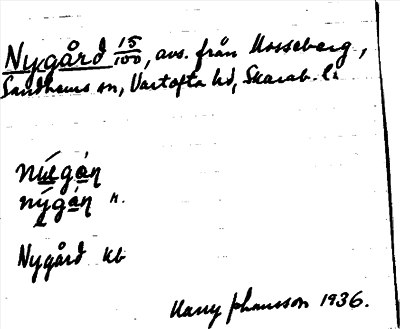 Nygård 15/100, avs. från Mosseberg,
Sandhems sn, Vartofta hd, Skarab. l.
nýgán n.
Nygård kb
Harry Johansson 1936.